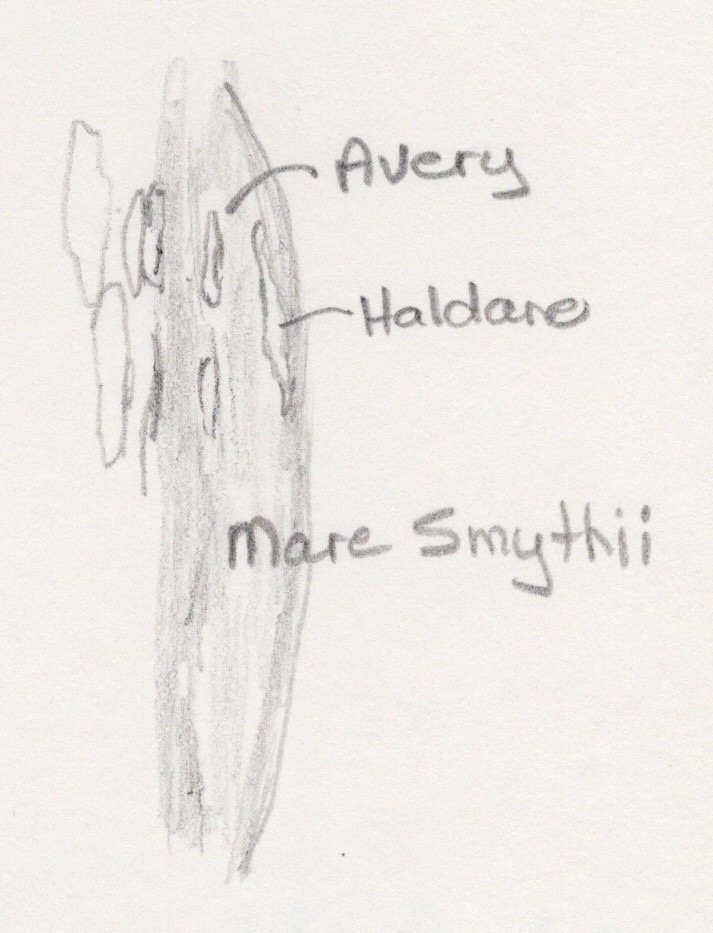 Avery
Haldane
Mare Smythii